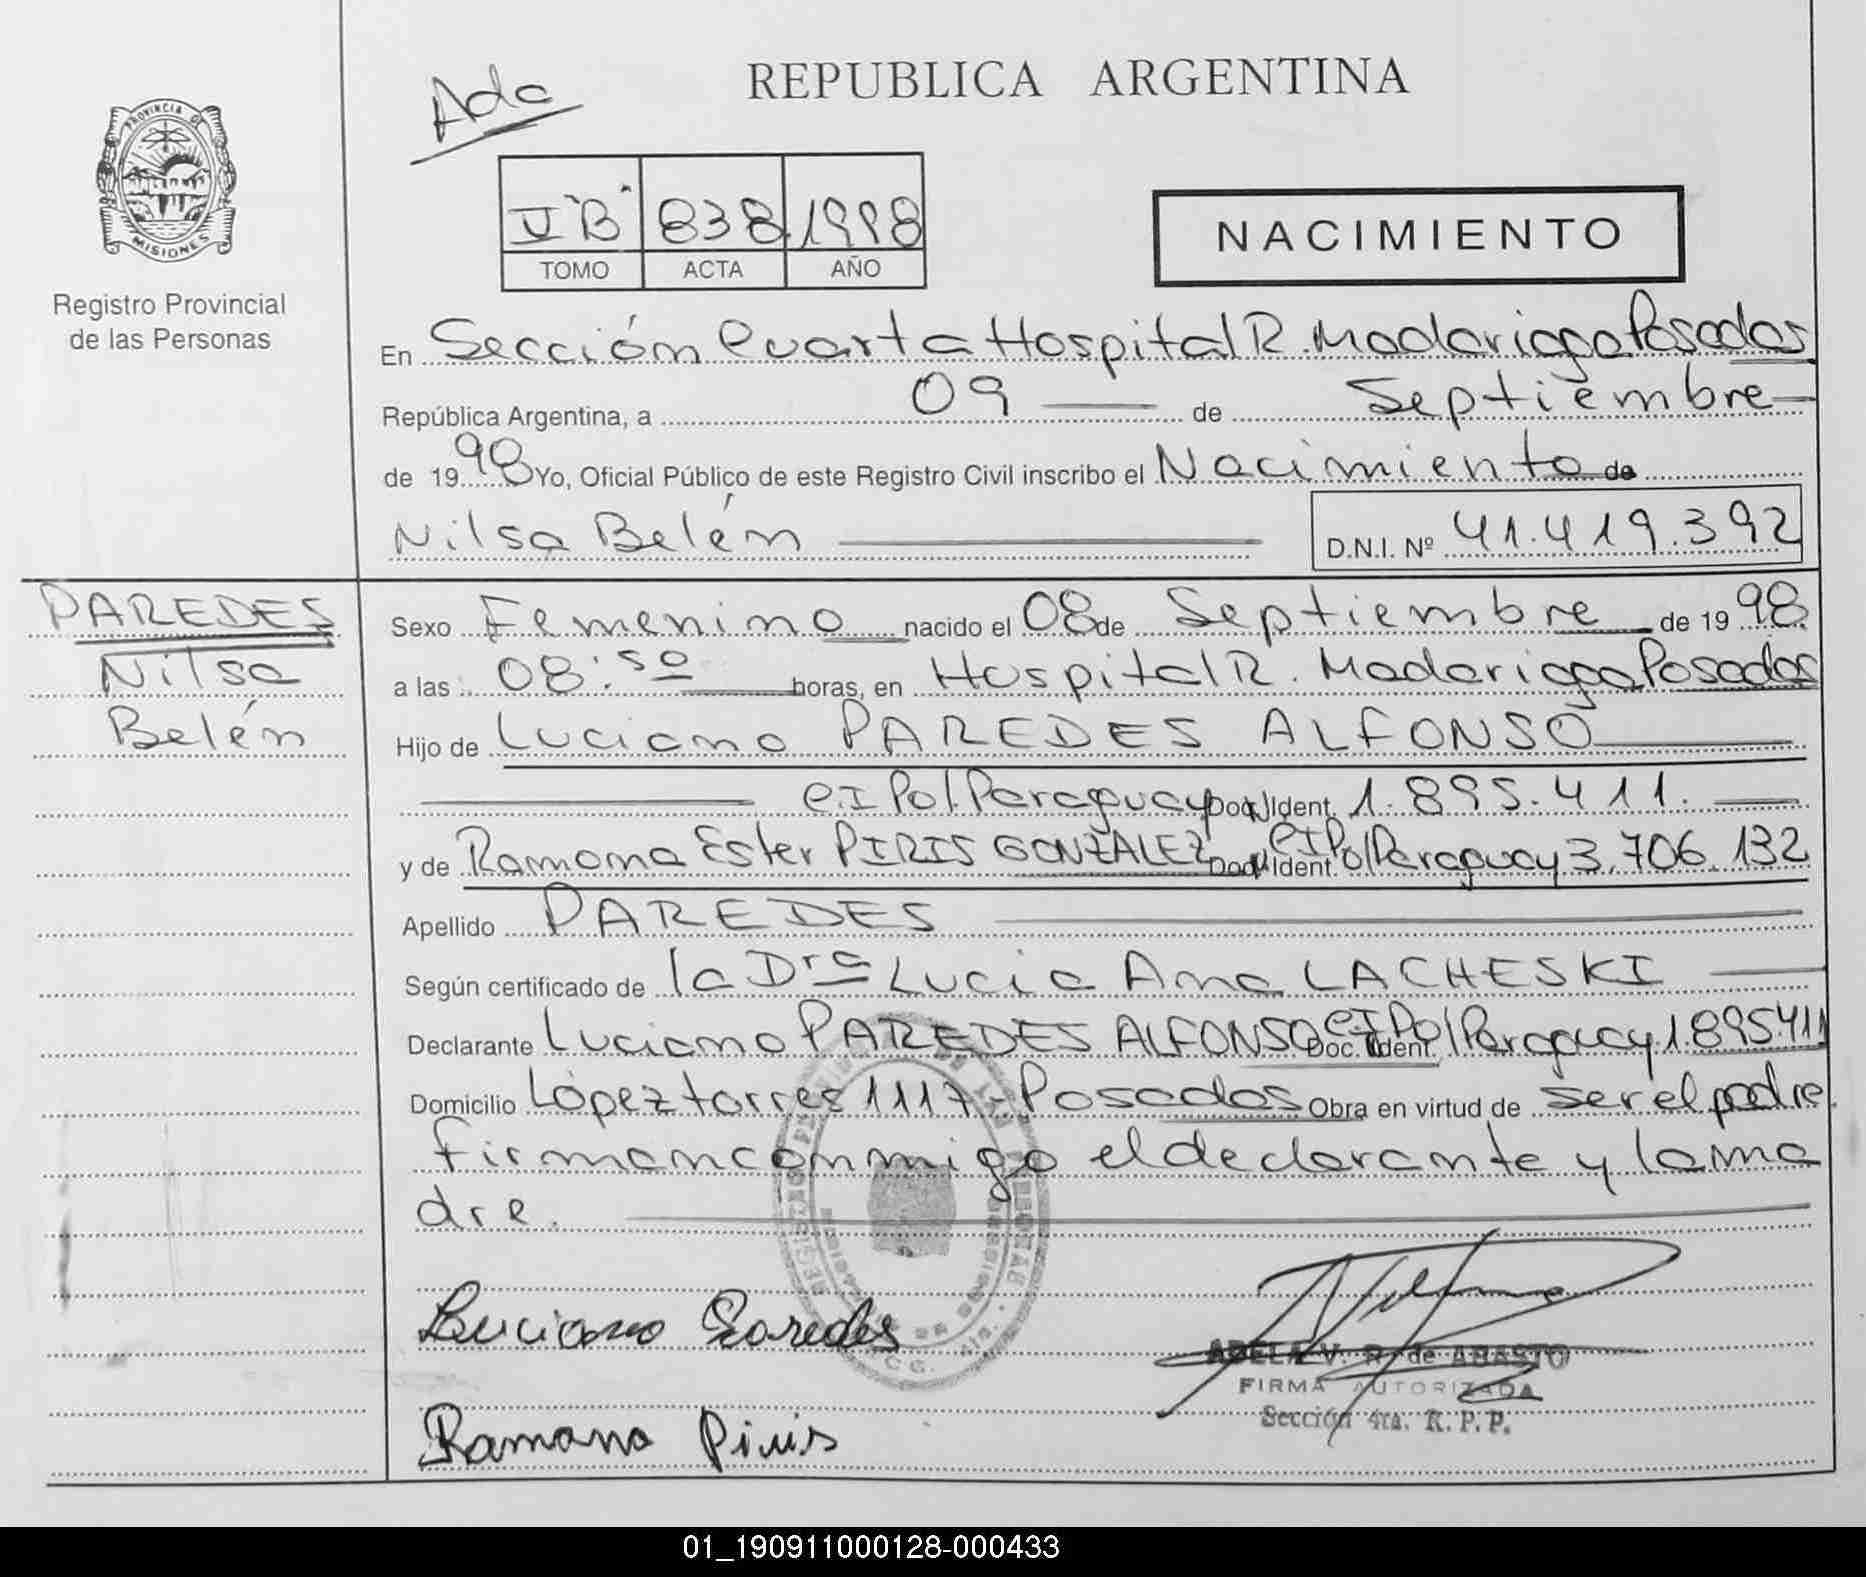 REPUBLICA ARGENTINA
Ada
PROVINCIA DE
MISIONES
Registro Provincial
de las Personas
V "B" 838 1998
TOMO ACTA AÑO
NACIMIENTO
En Sección Cuarta Hospital R. Madariaga Posadas
República Argentina, a 09 de Septiembre
de 1998 Yo, Oficial Público de este Registro Civil inscribo el Nacimiento de
Nilsa Belén D.N.I. Nº 41.419.392
PAREDES
Nilsa
Belén
Sexo Femenino nacido el 08 de Septiembre de 1998
a las 08:50 horas, en Hospital R. Madariaga Posadas
Hijo de Luciano PAREDES ALFONSO
C.I Pol. Paraguay Doc. Ident. 1.895.411.
y de Ramona Ester PIRIS GONZALEZ Doc. Ident. C.I Pol Paraguay 3.706.132
Apellido PAREDES
Según certificado de la Dra Lucia Ana LACHESKI
Declarante Luciano PAREDES ALFONSO Doc. Ident. C.I Pol Paraguay 1.895.411
Domicilio López torres 1117 - Posadas Obra en virtud de ser el padre.
firman conmigo el declarante y la ma
dre.
Luciano Paredes
ADELA V. R. de ABASTO
FIRMA AUTORIZADA
Sección 4ta. R.P.P.
Ramona Piris
01_190911000128-000433